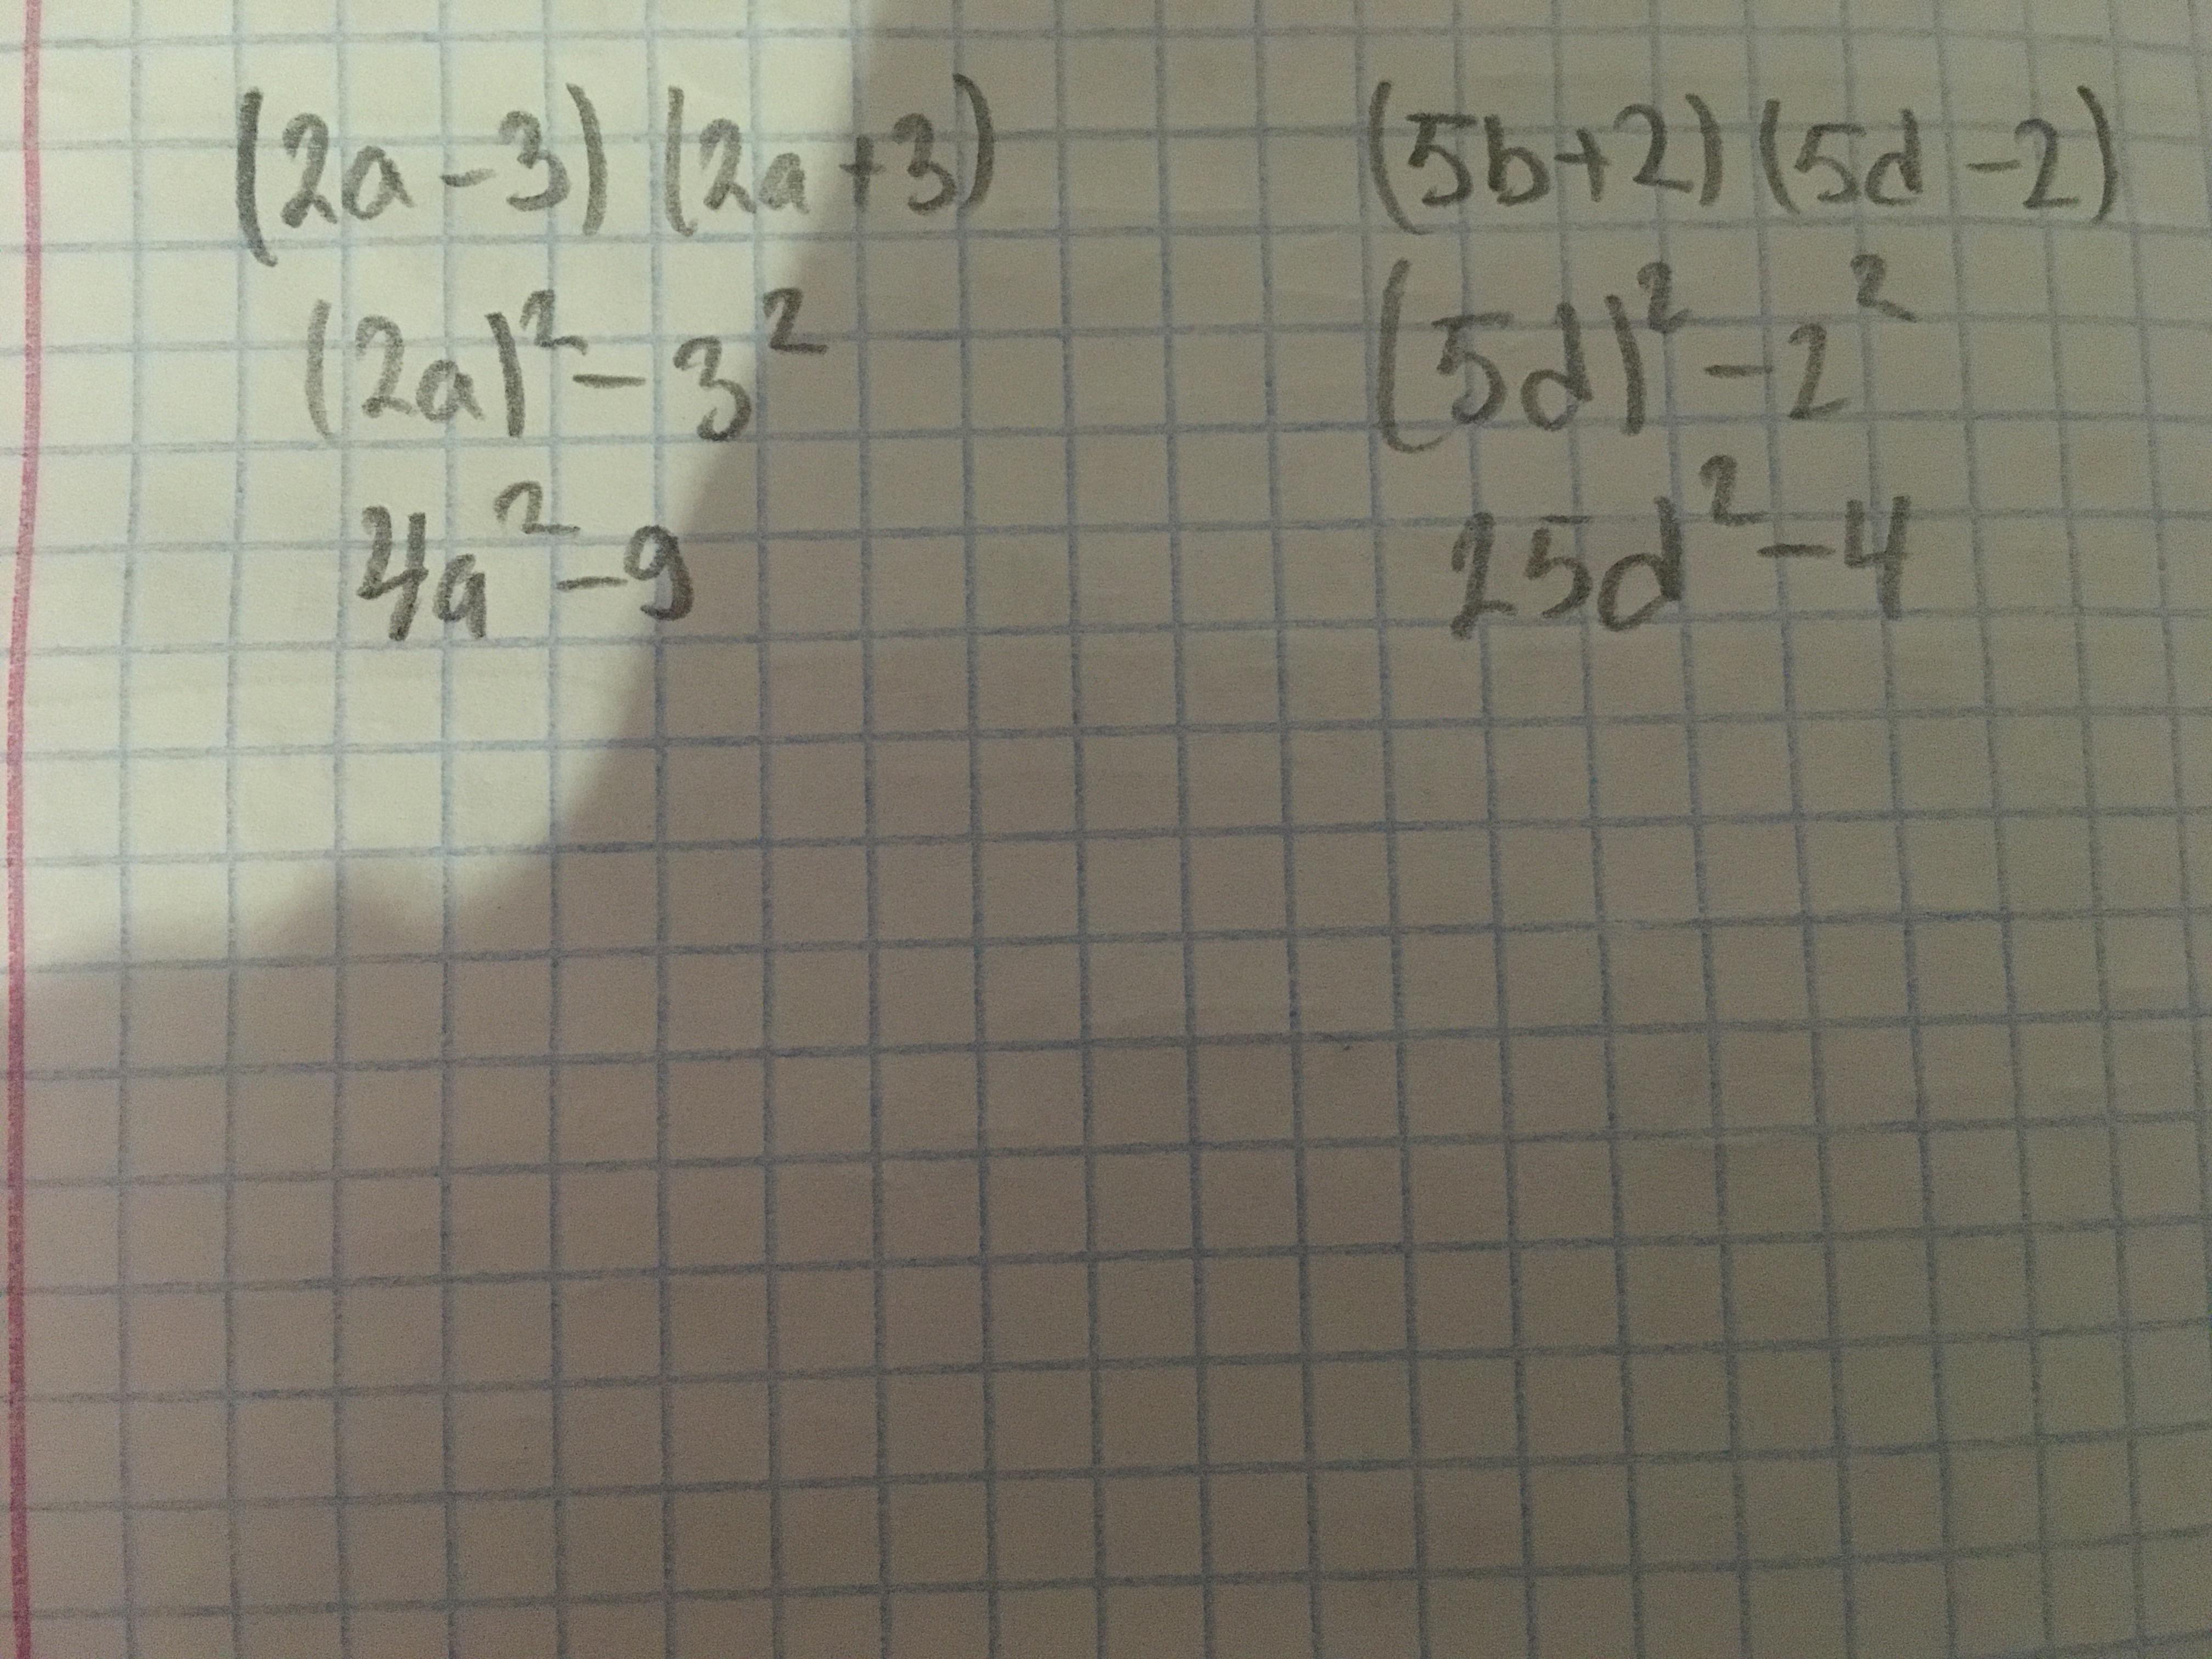 (2a-3) (2a+3)
(2a)² - 3²
4a² - 9
(5b+2) (5d-2)
(5d)² - 2²
25d² - 4